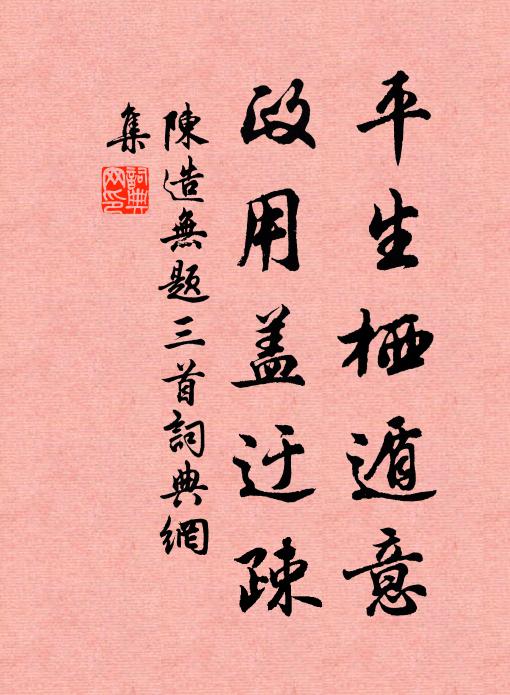 平生栖遁意
政用盖迂疎
陳造無题三首詞典網
集
詞典网印